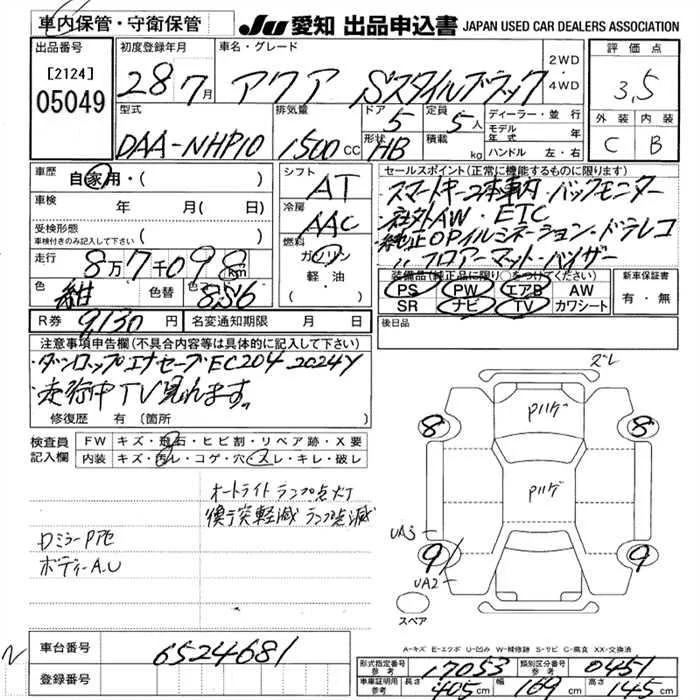 車内保管・守衛保管
JU 愛知 出品申込書 JAPAN USED CAR DEALERS ASSOCIATION
出品番号
[2124]
05049
初度登録年月
28 7月
車名・グレード
アクア Sスタイルブラック
2WD
4WD
評価点
3.5
外装 内装
C B
型式
DAA-NHP10
排気量
1500cc
ドア
5
形状
HB
定員
5人
積載
kg
ディーラー・並行
モデル年式 年
ハンドル 左・右
車歴
自家用・( )
車検 年 月( 日)
受検形態
車検付きのみ記入して下さい ( )
走行
8万7千098km
色 紺 色替 色コード 8S6
シフト
AT
冷房
AAC
燃料
ガソリン
軽油
( )
セールスポイント(正常に機能するものに限ります)
スマートキー2本車内・バックモニター
・社外AW・ETC
・純正OPイルミネーション・ドラレコ
〃フロアーマット・バイザー
装備品(純正品に限り○をつけてください)
PS PW エアB AW
SR ナビ TV カワシート
新車保証書
有・無
R券 9130円 名変通知期限 月 日
後日品
注意事項申告欄(不具合内容等は具体的に記入して下さい)
・ダンロップエナセーブEC204 2024Y
・走行中TV見れます。
修復歴 有 〔箇所
検査員記入欄
FW キズ・飛石・ヒビ割・リペア跡・X要
内装 キズ・汚レ・コゲ・穴・スレ・キレ・破レ
オートライト ランプ点灯
衝突軽減 ランプ点滅
Dミラー
ボディーA.U
ズレ
Pハゲ
Pハゲ
8 8
UA3
9 9
UA2
スペア
A-キズ E-エクボ U-凹み W-補修跡 S-サビ C-腐食 XX-交換済
車台番号 6524681
登録番号
型式指定番号 参考 17053 類別区分番号 参考 0451
車庫証明用 参考 長さ 405cm 幅 169cm 高さ 145cm